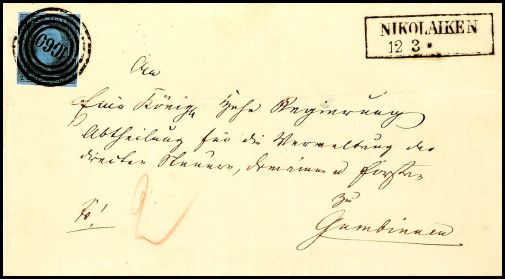 1060
NIKOLAIKEN
12 3 *
An
Eine Königl Hohe Regierung
Abtheilung für die Verwaltung der
directen Steuern, Domainen u Forsten
zu
Gumbinnen
fr!
2